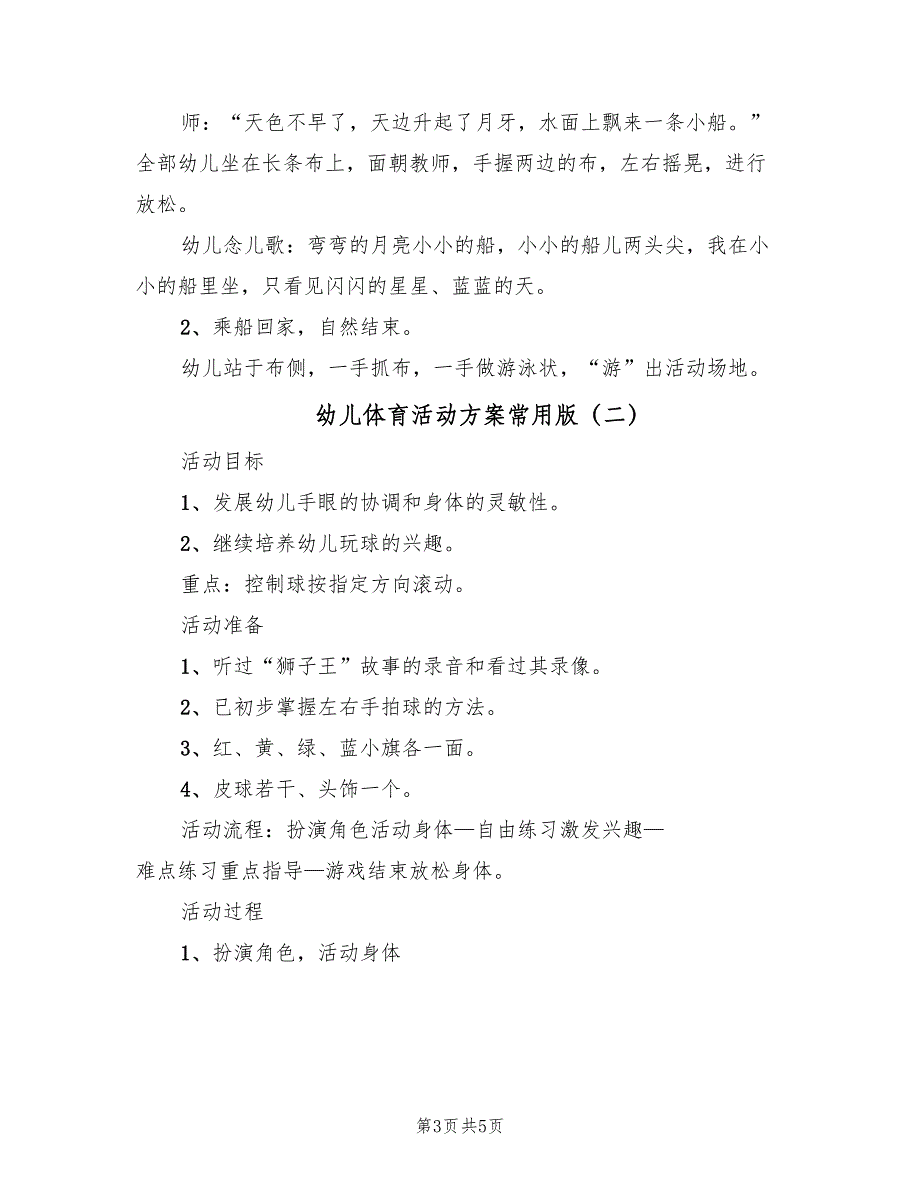 师：“天色不早了，天边升起了月牙，水面上飘来一条小船。”
全部幼儿坐在长条布上，面朝教师，手握两边的布，左右摇晃，进行
放松。
幼儿念儿歌：弯弯的月亮小小的船，小小的船儿两头尖，我在小
小的船里坐，只看见闪闪的星星、蓝蓝的天。
2、乘船回家，自然结束。
幼儿站于布侧，一手抓布，一手做游泳状，“游”出活动场地。
幼儿体育活动方案常用版（二）
活动目标
1、发展幼儿手眼的协调和身体的灵敏性。
2、继续培养幼儿玩球的兴趣。
重点：控制球按指定方向滚动。
活动准备
1、听过“狮子王”故事的录音和看过其录像。
2、已初步掌握左右手拍球的方法。
3、红、黄、绿、蓝小旗各一面。
4、皮球若干、头饰一个。
活动流程：扮演角色活动身体—自由练习激发兴趣—
难点练习重点指导—游戏结束放松身体。
活动过程
1、扮演角色，活动身体
第3页共5页